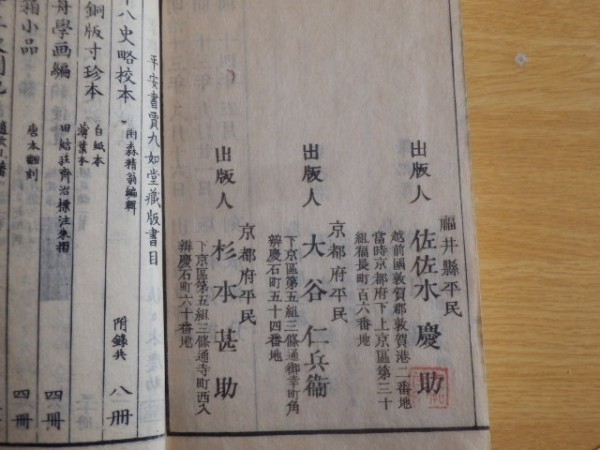 福井縣平民
出版人 佐佐木慶助
越前國敦賀郡敦賀港二番地
當時京都府下上京區第三十
組福長町百六番地
京都府平民
出版人 大谷仁兵衞
下京區第五組三條通御幸町角
辨慶石町五十四番地
京都府平民
出版人 杉本甚助
下京區第五組三條通寺町西入
辨慶石町六十番地
平安書賈九如堂藏版書目
雨森精翁編輯
十八史略校本 附錄共 八冊
白紙本
薄葉本
銅版寸珍本
標注朱摺
舟學画編 四冊
唐本翻刻
箱小品 四冊